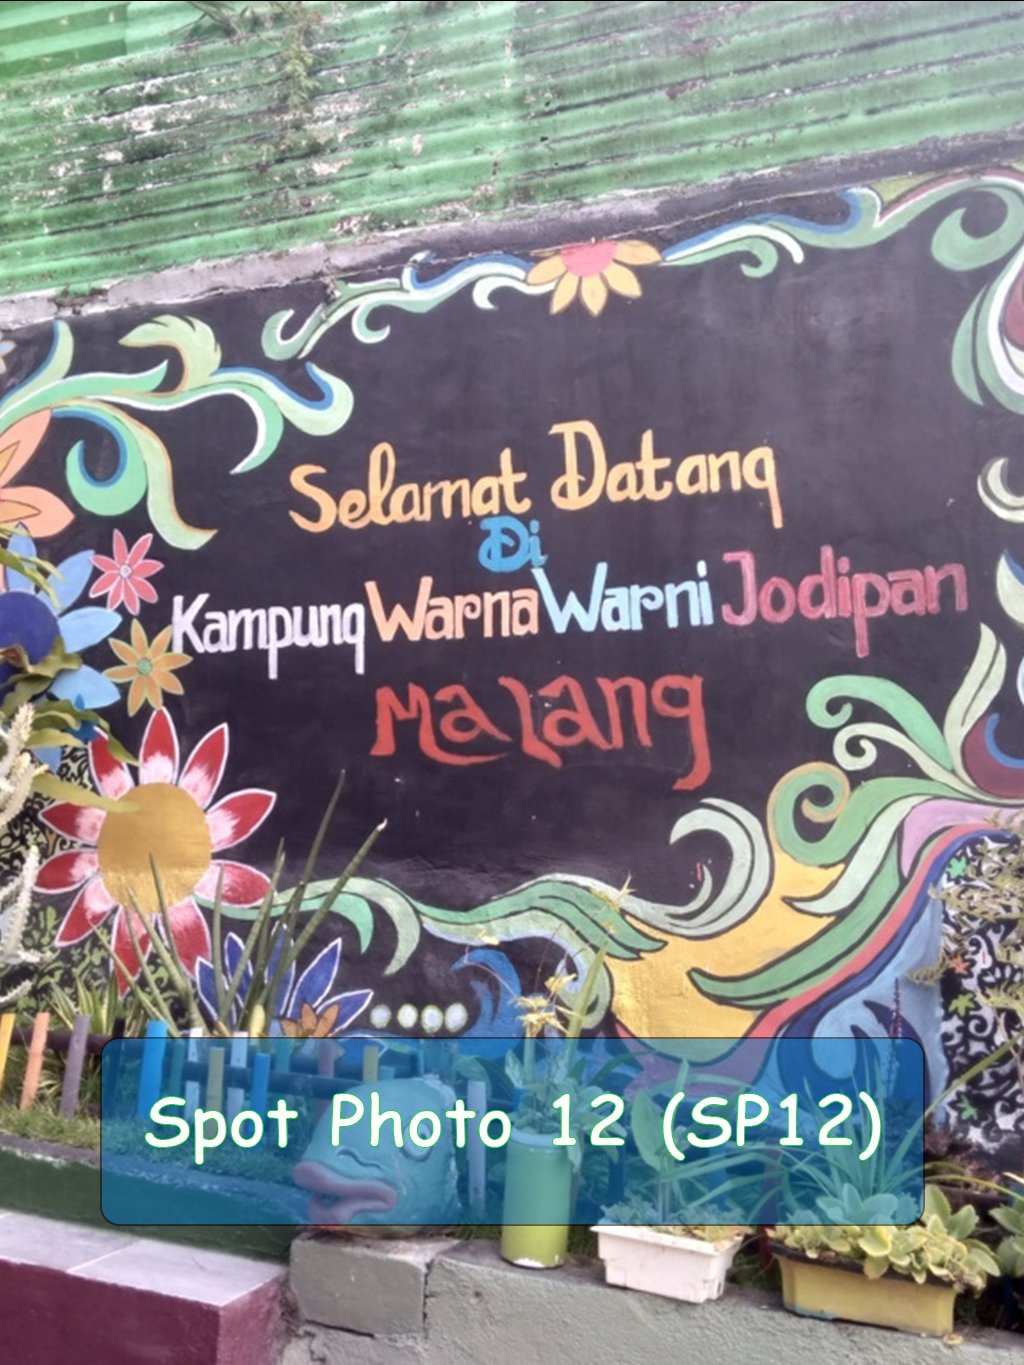 Selamat Datang
Di
Kampung Warna Warni Jodipan
Malang
Spot Photo 12 (SP12)